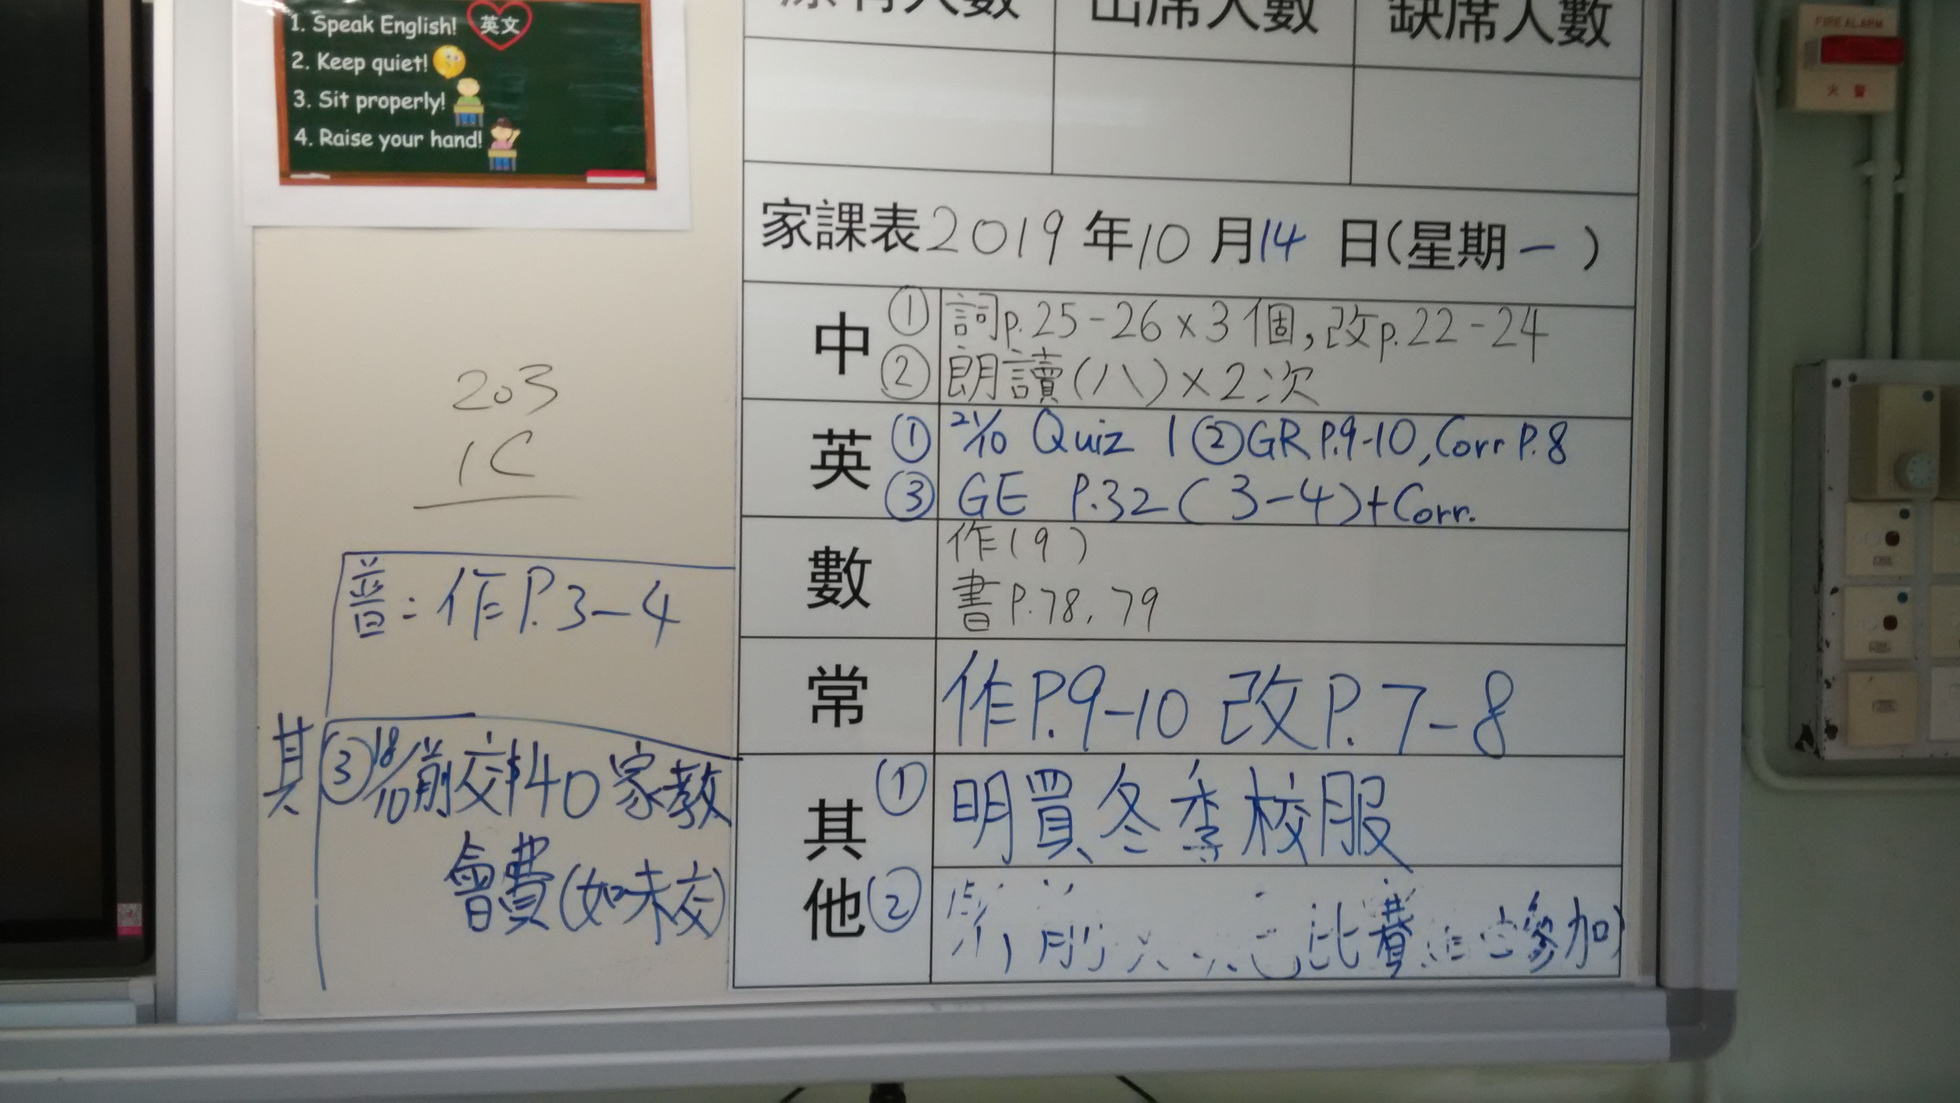 1. Speak English! 英文
2. Keep quiet!
3. Sit properly!
4. Raise your hand!
原有人數 出席人數 缺席人數
FIRE ALARM
火 警
家課表2019年10月14日(星期一)
中 ① 詞p.25-26×3個,改p.22-24
② 朗讀(八)×2次
英 ① 21/10 Quiz 1 ②GR P.9-10, Corr P.8
③ GE P.32(3-4)+Corr.
數 作(9)
書P.78, 79
常 作P.9-10 改P.7-8
其他 ① 明買冬季校服
② 前 費 參加)
203
1C
普:作P.3-4
其 ③ 18/10前交$40家教
會費(如未交)